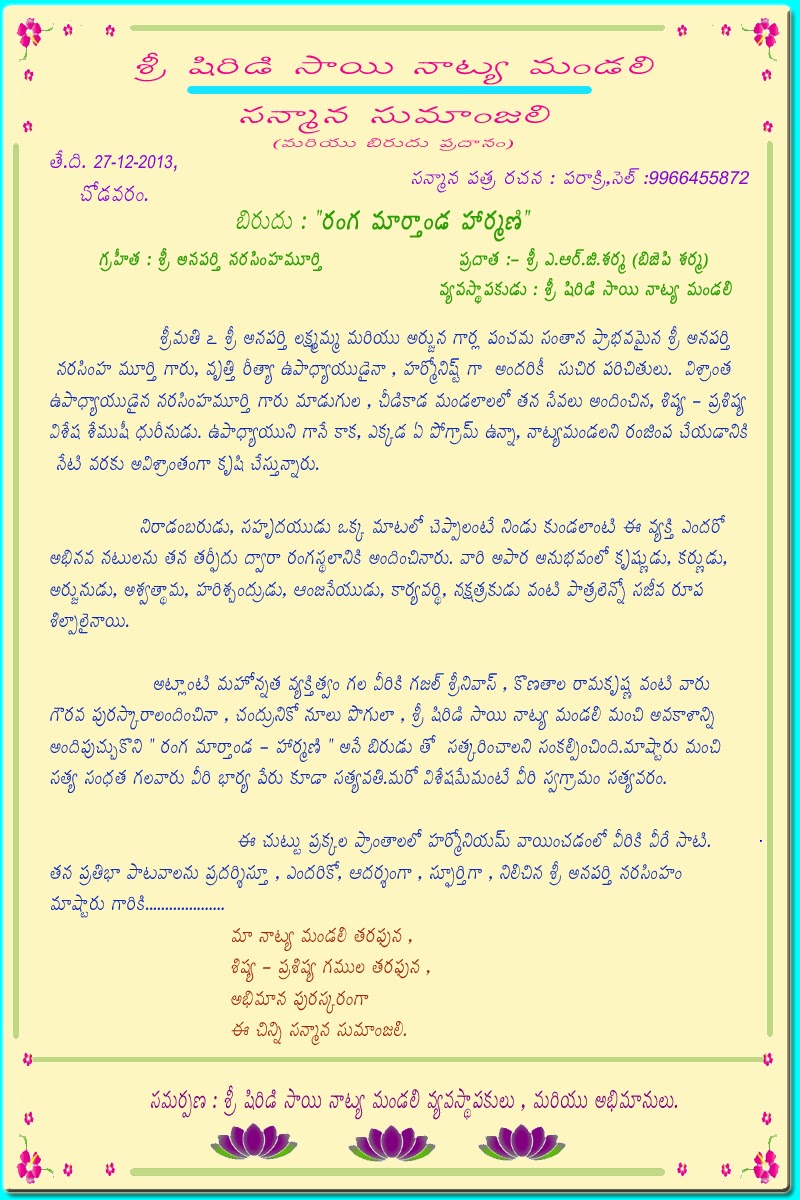 శ్రీ షిరిడి సాయి నాట్య మండలి
సన్మాన సుమాంజలి
(మరియు బిరుదు ప్రదానం)
తే.ది. 27-12-2013,
సన్మాన పత్ర రచన : పరాక్రి,సెల్ :9966455872
చోడవరం.
బిరుదు : "రంగ మార్తాండ హార్మణి"
గ్రహీత : శ్రీ అనపర్తి నరసింహమూర్తి
ప్రదాత :– శ్రీ ఎ.ఆర్.జి.శర్మ (బిజెపి శర్మ)
వ్యవస్థాపకుడు : శ్రీ షిరిడి సాయి నాట్య మండలి
శ్రీమతి & శ్రీ అనపర్తి లక్ష్మమ్మ మరియు అర్జున గార్ల పంచమ సంతాన ప్రాభవమైన శ్రీ అనపర్తి
నరసింహ మూర్తి గారు, వృత్తి రీత్యా ఉపాధ్యాయుడైనా , హర్మోనిష్ట్ గా అందరికీ సుచిర పరిచితులు. విశ్రాంత
ఉపాధ్యాయుడైన నరసింహమూర్తి గారు మాడుగుల , చీడికాడ మండలాలలో తన సేవలు అందించిన, శిష్య – ప్రశిష్య
విశేష శేముషీ ధురీనుడు. ఉపాధ్యాయుని గానే కాక, ఎక్కడ ఏ పోగ్రామ్ ఉన్నా, నాట్యమండలని రంజింప చేయడానికి
నేటి వరకు అవిశ్రాంతంగా కృషి చేస్తున్నారు.
నిరాడంబరుడు, సహృదయుడు ఒక్క మాటలో చెప్పాలంటే నిండు కుండలాంటి ఈ వ్యక్తి ఎందరో
అభినవ నటులను తన తర్ఫీదు ద్వారా రంగస్థలానికి అందించినారు. వారి అపార అనుభవంలో కృష్ణుడు, కర్ణుడు,
అర్జునుడు, అశ్వత్థామ, హరిశ్చంద్రుడు, ఆంజనేయుడు, కార్యవర్థి, నక్షత్రకుడు వంటి పాత్రలెన్నో సజీవ రూప
శిల్పాలైనాయి.
అట్లాంటి మహోన్నత వ్యక్తిత్వం గల వీరికి గజల్ శ్రీనివాస్ , కొణతాల రామకృష్ణ వంటి వారు
గౌరవ పురస్కారాలందించినా , చంద్రునికో నూలు పొగులా , శ్రీ షిరిడి సాయి నాట్య మండలి మంచి అవకాశాన్ని
అందిపుచ్చుకొని " రంగ మార్తాండ – హార్మణి " అనే బిరుదు తో సత్కరించాలని సంకల్పించింది.మాష్టారు మంచి
సత్య సంధత గలవారు వీరి భార్య పేరు కూడా సత్యవతి.మరో విశేషమేమంటే వీరి స్వగ్రామం సత్యవరం.
ఈ చుట్టు ప్రక్కల ప్రాంతాలలో హర్మోనియమ్ వాయించడంలో వీరికి వీరే సాటి.
తన ప్రతిభా పాటవాలను ప్రదర్శిస్తూ , ఎందరికో, ఆదర్శంగా , స్ఫూర్తిగా , నిలిచిన శ్రీ అనపర్తి నరసింహం
మాష్టారు గారికి....................
మా నాట్య మండలి తరపున ,
శిష్య – ప్రశిష్య గముల తరపున ,
అభిమాన పురస్కరంగా
ఈ చిన్ని సన్మాన సుమాంజలి.
సమర్పణ : శ్రీ షిరిడి సాయి నాట్య మండలి వ్యవస్థాపకులు , మరియు అభిమానులు.